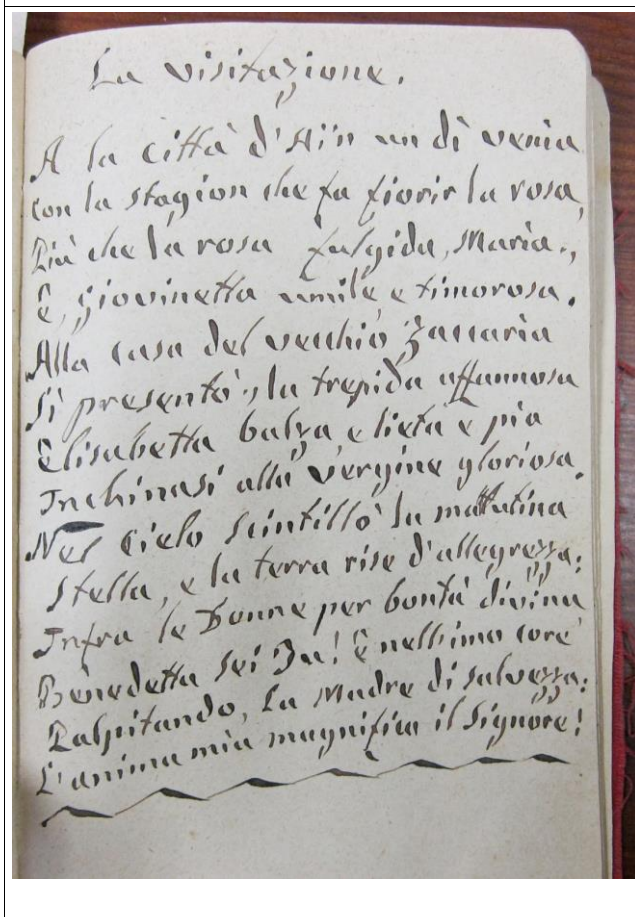 La visitazione.
A la città d'Ain un dì venia
con la stagion che fa fiorir la rosa,
Più che la rosa fulgida, Maria.,
È, giovinetta umile e timorosa.
Alla casa del vecchio Zaccaria
Si presentò., la trepida affannosa
Elisabetta balza, e lieta e pia
Inchinasi alla vergine gloriosa.
Nel cielo scintillò la mattutina
Stella, e la terra rise d'allegrezza:
Infra le Donne per bontà divina
Benedetta sei Tu! E nell'imo core
Palpitando, La Madre di salvezza:
L'anima mia magnifica il Signore!